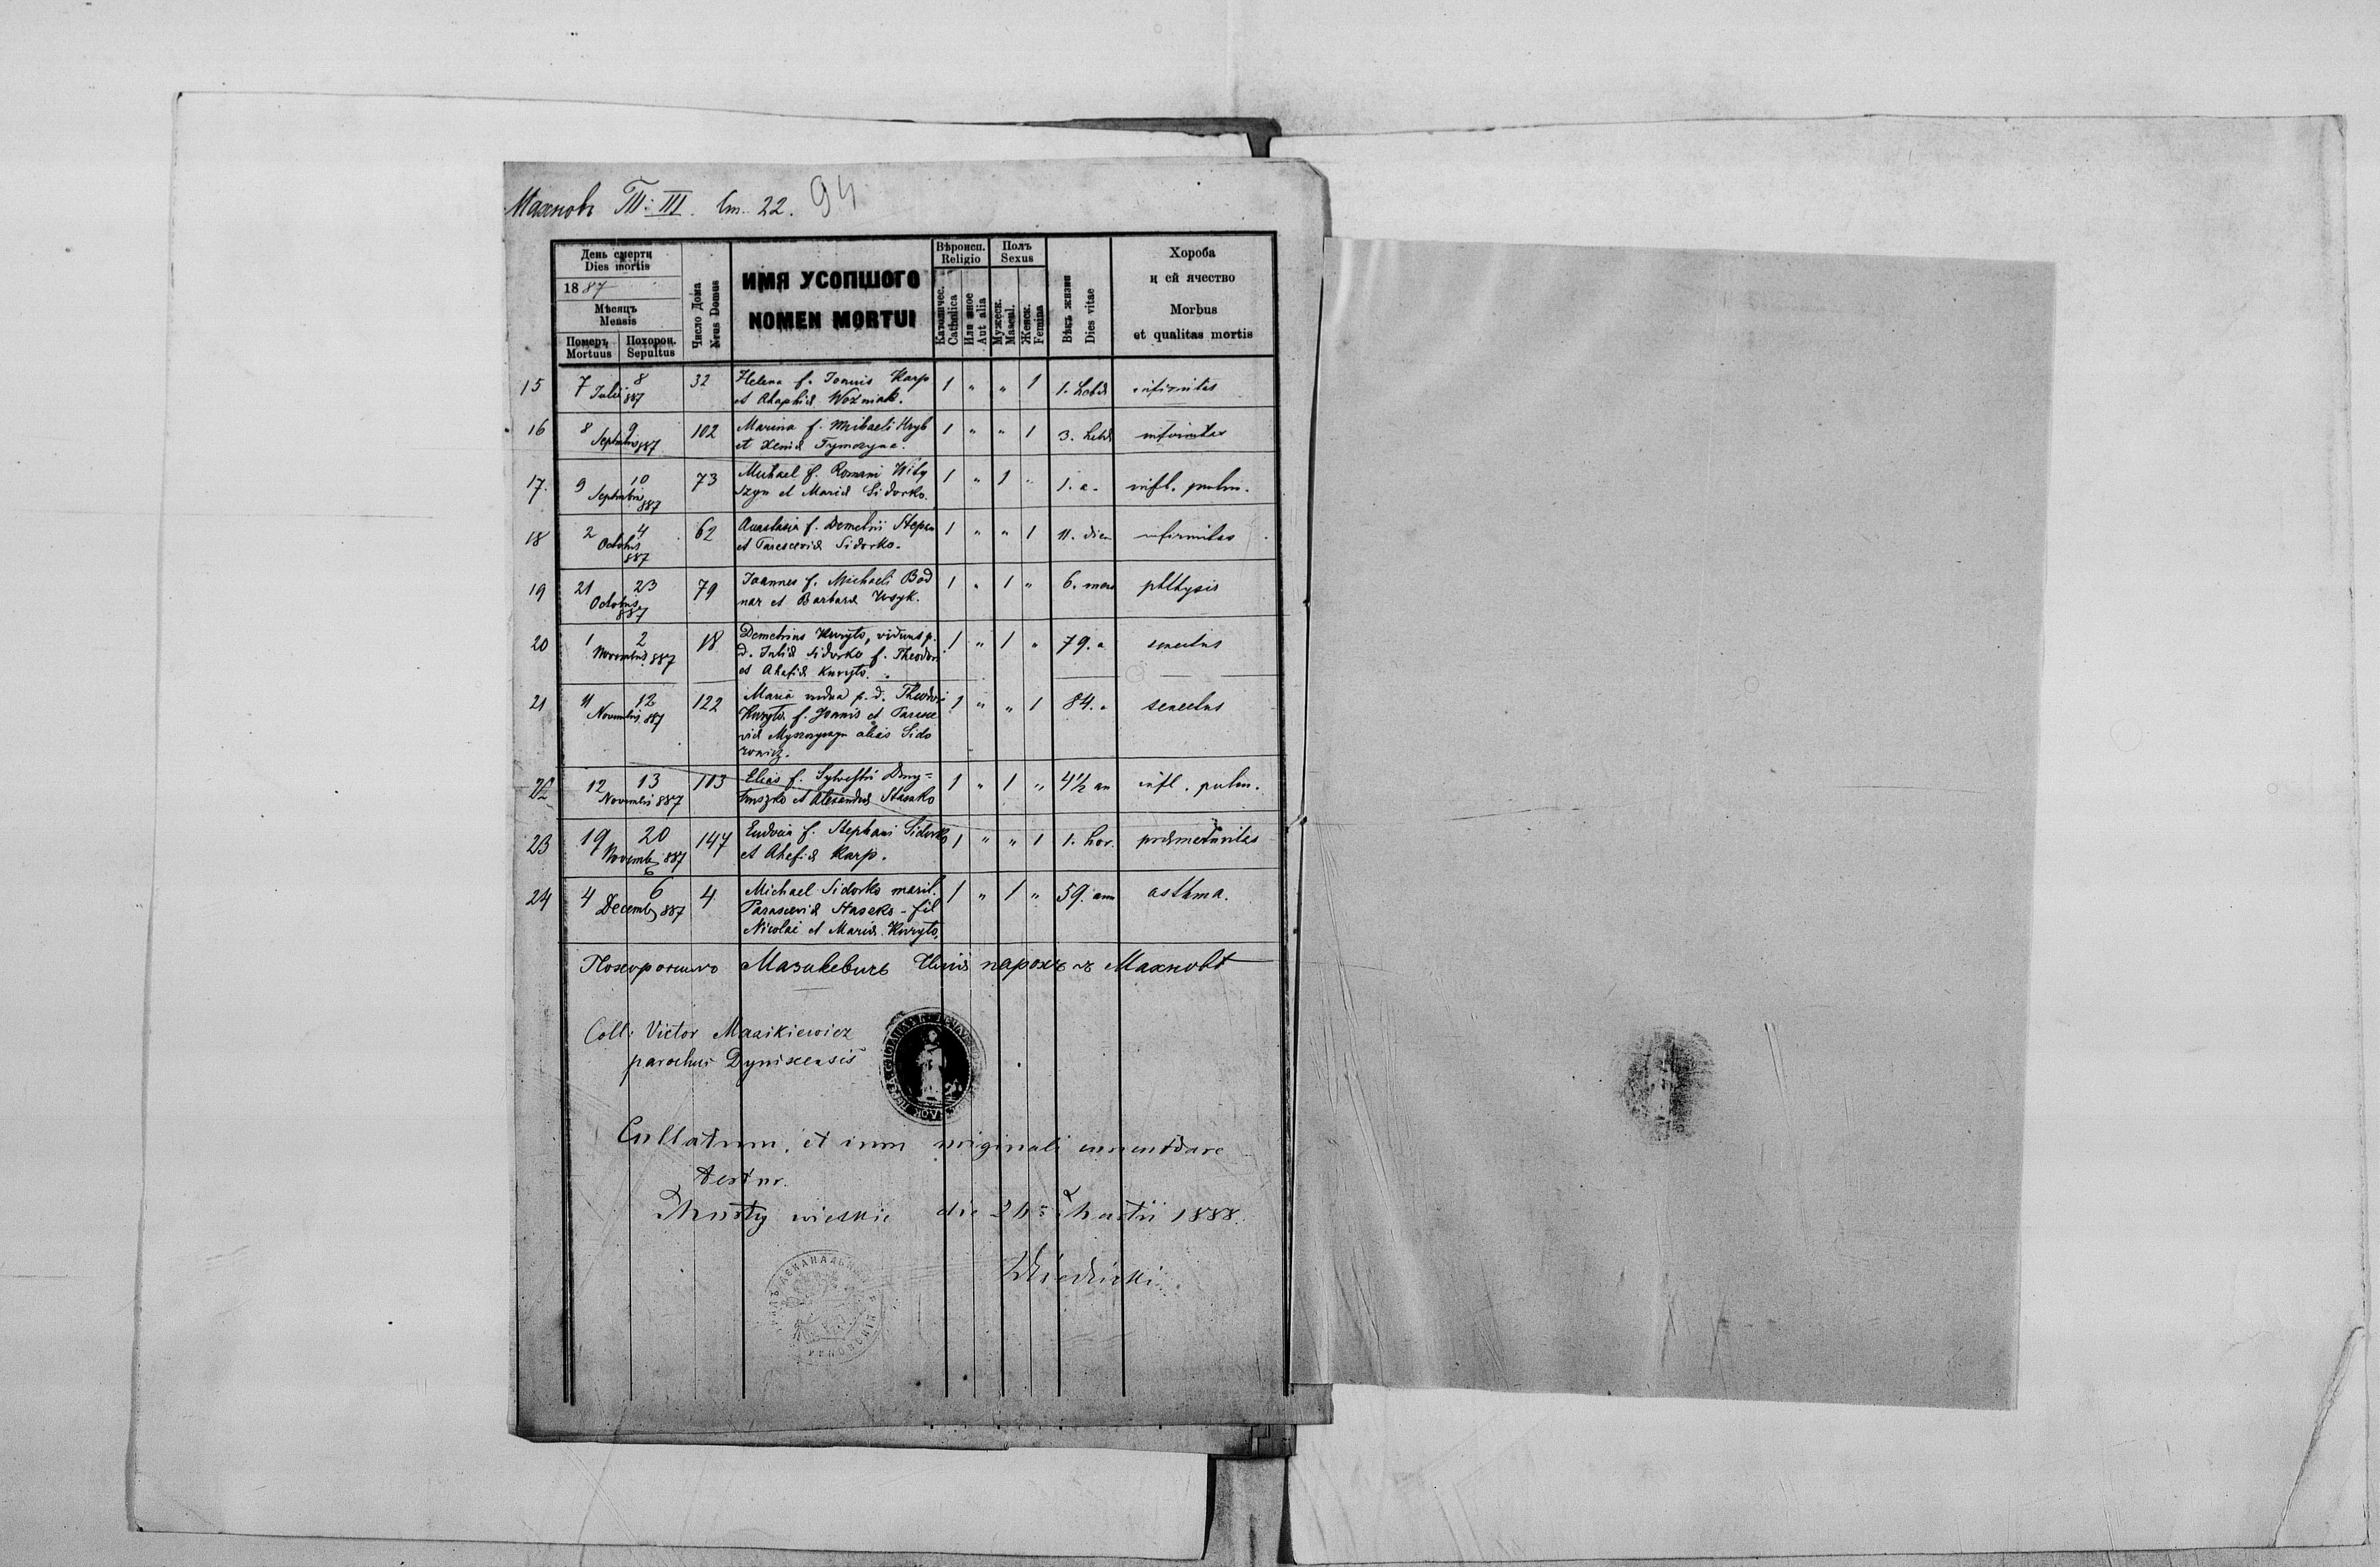 Махновъ Т: III. Ст. 22. 94
День смерти
Dies mortis
1887
Мѣсяцъ
Mensis
Померъ Похорон.
Mortuus Sepultus
Число Дома
Nrus Domus
ИМЯ УСОПШОГО
NOMEN MORTUI
Вѣроисп.
Religio
Католичес.
Catholica
Или иное
Aut alia
Полъ
Sexus
Мужеск.
Mascul.
Женск.
Femina
Вѣкъ жизни
Dies vitae
Хороба
и ей ячество
Morbus
et qualitas mortis
15 7 8 32 Helena f. Joannis Karp 1 " " 1 1. hebd infirmitas
Julii 887 et Ahaphiæ Wozniak.
16 8 9 102 Marina f. Michaeli Hryb 1 " " 1 3. hebd infirmitas
Septembris 887 et Xeniæ
17. 9 10 73 Michael f. Romani Wity 1 " 1 " 1. a. infl. pulm.
Septembris 887 szyn et Mariæ Sidorko.
18 2 4 62 Anastasia f. Demetrii Stepan 1 " " 1 11. dies infirmitas
Octobris 887 et Paresceviæ Sidorko.
19 21 23 79 Joannes f. Michaeli Bod 1 " 1 " 6. mens phthysis
Octobris 887 nar et Barbaræ Usyk.
20 1 2 18 Demetrius Kuryło, viduus p. 1 " 1 " 79. a senectus
Novembris 887 d. Juliæ Sidorko f. Theodori
et Ahafiæ Kuryło.
21 11 12 122 Maria vidua p. d. Theodori 1 " " 1 84. a senectus
Novembris 887 Kuryło. f. Joannis et Paresce
viæ alias Sido
rowicz.
22 12 13 113 Elias f. Sylvestri Dmy= 1 " 1 " 4½ an infl. pulm.
Novembris 887 truszko et Alexandræ Staseko
23 19 20 147 Eudocia f. Stephani Sidorko 1 " " 1 1. hor. præmaturitas
Novemb 887 et Ahafiæ Karp.
24 4 6 4 Michael Sidorko marit. 1 " 1 " 59. ann asthma.
Decemb 887 Parasceviæ Staseko - fil
Nicolai et Mariæ Kuryło,
Похоронивъ Мазикевичъ парохъ въ Махновѣ
Coll: Victor Masikiewicz
parochus Dyniscensis
Collatum, et cum originali concordare
testor.
wielkie die Martii 1888.